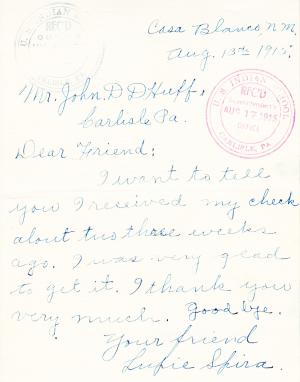 Casa Blanca, N.M.
Aug. 13th 1915.
U.S. INDIAN SCHOOL
REC'D
AUG 17 1915
OFFICE
CARLISLE, PA
Mr. John D D Huff,
Carlisle Pa.
Dear Friend:
I want to tell
you I received my check
about two three weeks
ago. I was very glad
to get it. I thank you
very much. Good bye.
Your friend
Lupie Spira.